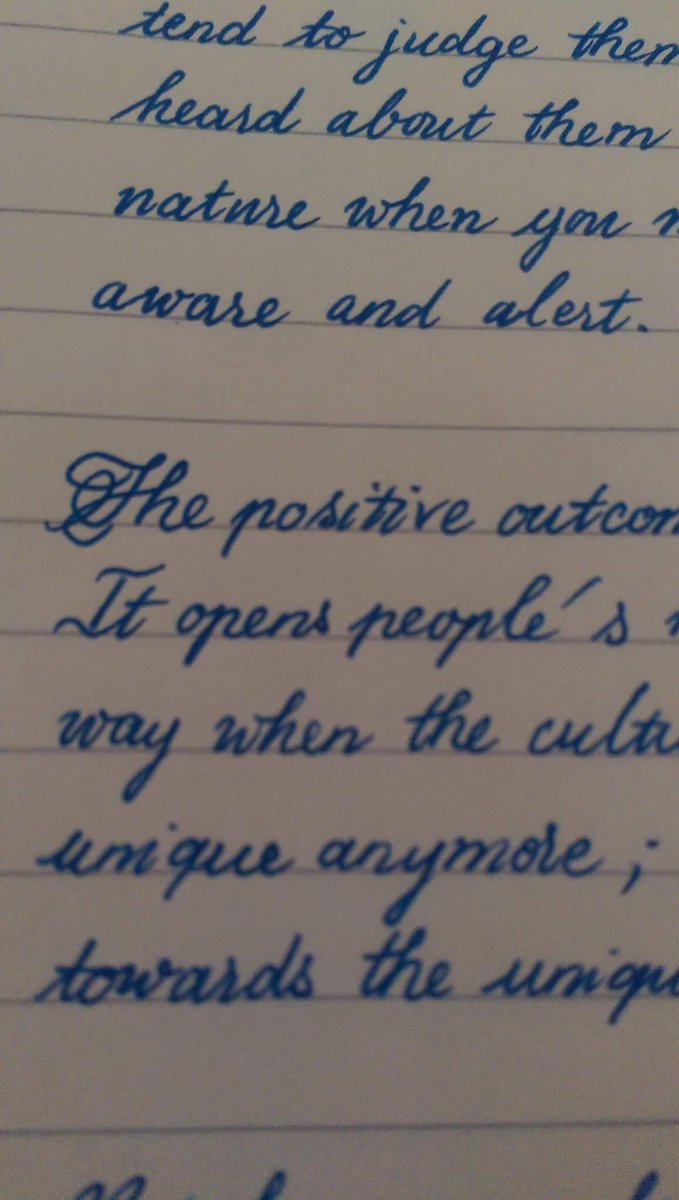 tend to judge them
heard about them
nature when you
aware and alert.
The positive
It opens people´s
way when the
unique anymore;
towards the